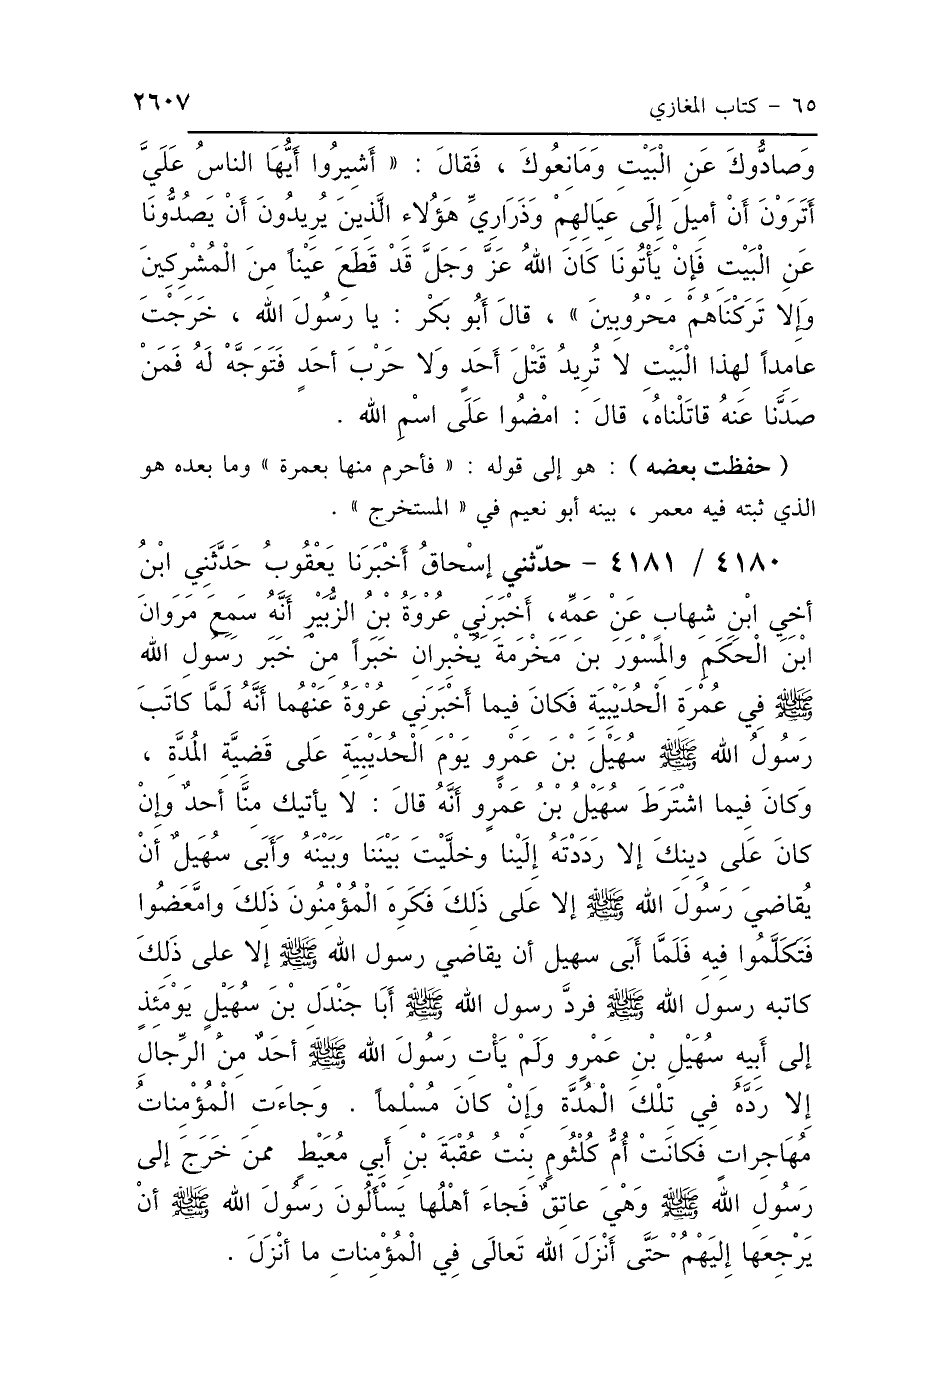 ٦٥ - كتاب المغازي ٢٦٠٧
وَصادُّوكَ عَنِ الْبَيْتِ وَمَانِعُوكَ ، فَقالَ : « أَشيرُوا أَيُّهَا الناسُ عَلَيَّ
أَتَرَوْنَ أَنْ أميلَ إلَى عِيَالِهِمْ وَذَرَارِيِّ هَؤُلاءِ الَّذِينَ يُرِيدُونَ أَنْ يَصُدُّونَا
عَنِ الْبَيْتِ فَإِنْ يَأْتُونَا كَانَ اللهُ عَزَّ وَجَلَّ قَدْ قَطَعَ عَيْناً مِنَ الْمُشْرِكِينَ
وَإِلا تَرَكْنَاهُمْ مَحْرُوبينَ » ، قالَ أَبُو بَكْرٍ : يا رَسُولَ الله ، خَرَجْتَ
عامِداً لِهذا الْبَيْتِ لا تُرِيدُ قَتْلَ أَحَدٍ وَلا حَرْبَ أحَدٍ فَتَوَجَّهْ لَهُ فَمَنْ
صَدَّنا عَنهُ قاتَلْناهُ، قالَ : امْضُوا عَلَى اسْمِ الله .
( حفظت بعضه ) : هو إلى قوله : « فأحرم منها بعمرة » وما بعده هو
الذي ثبته فيه معمر ، بينه أبو نعيم في « المستخرج » .
٤١٨٠ / ٤١٨١ - حدّثني إسْحاقُ أَخْبَرَنا يَعْقُوبُ حَدَّثَنِي ابْنُ
أخي ابْنِ شهابٍ عَنْ عَمِّهِ، أَخْبَرَنِي عُرْوَةُ بْنُ الزُّبَيْرِ أَنَّهُ سَمِعَ مَرْوَانَ
ابْنَ الْحَكَمِ والمِسْوَرَ بن مَخْرَمةَ يُخْبِرانِ خَبَراً مِن خَبَرِ رَسُولِ الله
ﷺ فِي عُمْرَةِ الْحُدَيْبِيَةِ فَكانَ فيما أَخْبَرَنِي عُرْوَةُ عَنْهُما أَنَّهُ لَمَّا كاتَبَ
رَسُولُ الله ﷺ سُهَيْلَ بْنَ عَمْرٍو يَوْمَ الْحُدَيْبِيَةِ عَلى قَضِيَّةِ المُدَّةِ ،
وَكانَ فيما اشْتَرَطَ سُهَيْلُ بْنُ عَمْرٍو أَنَّهُ قالَ : لا يأتيك مِنَّا أحدٌ وإنْ
كانَ عَلى دِينِكَ إلا رَدَدْتَهُ إلَيْنا وخلَّيْتَ بَيْنَنا وبَيْنَهُ وأَبَى سُهَيلٌ أنْ
يُقاضيَ رَسُولَ الله ﷺ إلا عَلى ذَلكَ فَكَرِهَ الْمُؤْمِنُونَ ذَلكَ وامَّعَضُوا
فَتَكَلَّمُوا فِيهِ فَلَمَّا أبَى سهيل أن يقاضي رسول الله ﷺ إلا على ذَلكَ
كاتبه رسول الله ﷺ فردَّ رسول الله ﷺ أَبَا جَنْدَلِ بْنَ سُهَيْلٍ يَوْمَئِذٍ
إلى أَبِيهِ سُهَيْلِ بْنِ عَمْرٍو وَلَمْ يَأْتِ رَسُولَ الله ﷺ أحَدٌ مِنَ الرِّجالِ
إلا رَدَّهُ فِي تِلْكَ الْمُدَّةِ وَإنْ كانَ مُسْلِماً . وَجاءَتِ الْمُؤْمِناتُ
مُهَاجِراتٍ فَكانَتْ أُمُّ كُلْثُومٍ بِنْتُ عُقْبَةَ بْنِ أَبِي مُعَيْطٍ مِمنْ خَرَجَ إلى
رَسُولِ الله ﷺ وَهْيَ عاتِقٌ فَجاءَ أَهْلُها يَسْأَلُونَ رَسُولَ الله ﷺ أَنْ
يَرْجِعَها إِلَيْهُمْ حَتَّى أَنْزَلَ الله تَعالَى فِي الْمُؤْمِناتِ ما أنْزَلَ .